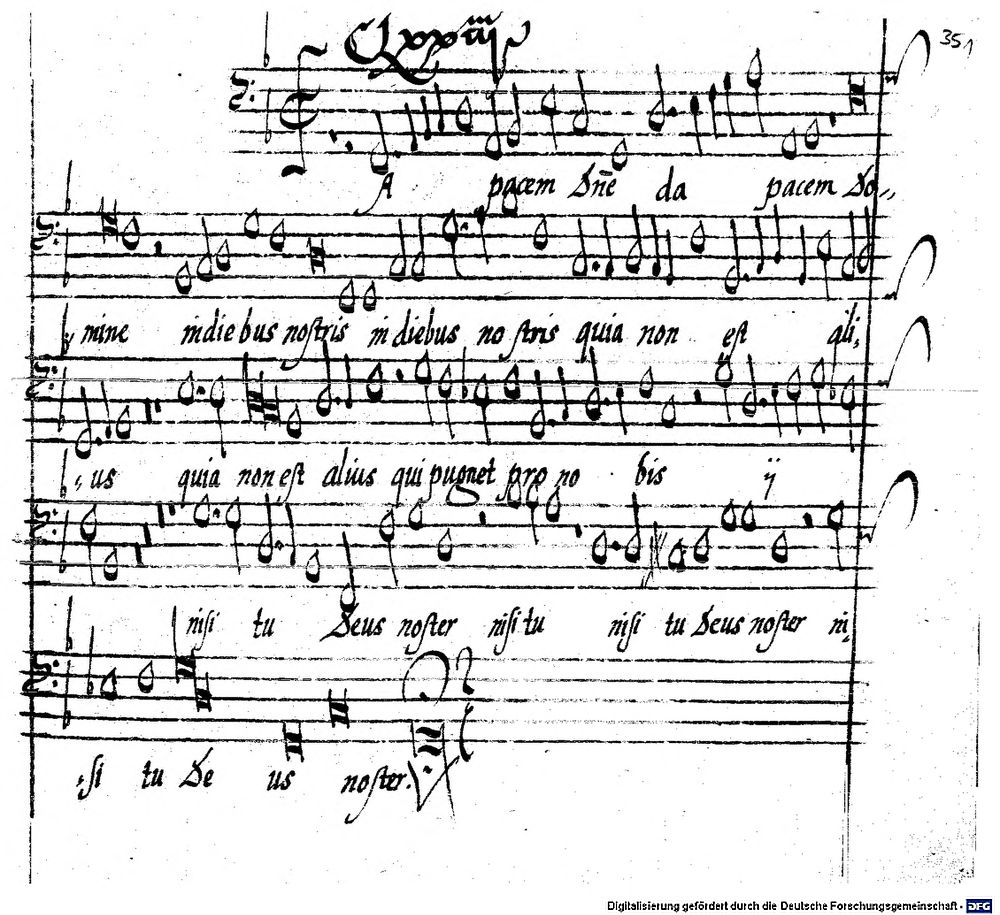 351
A pacem Dn̄e da pacem Do,,
mine indiebus nostris in diebus nostris quia non est ali,
us quia non est alius qui pugnet pro no bis ij
nisi tu Deus noster nisi tu nisi tu Deus noster ni,
si tu De us noster.
Digitalisierung gefördert durch die Deutsche Forschungsgemeinschaft - DFG